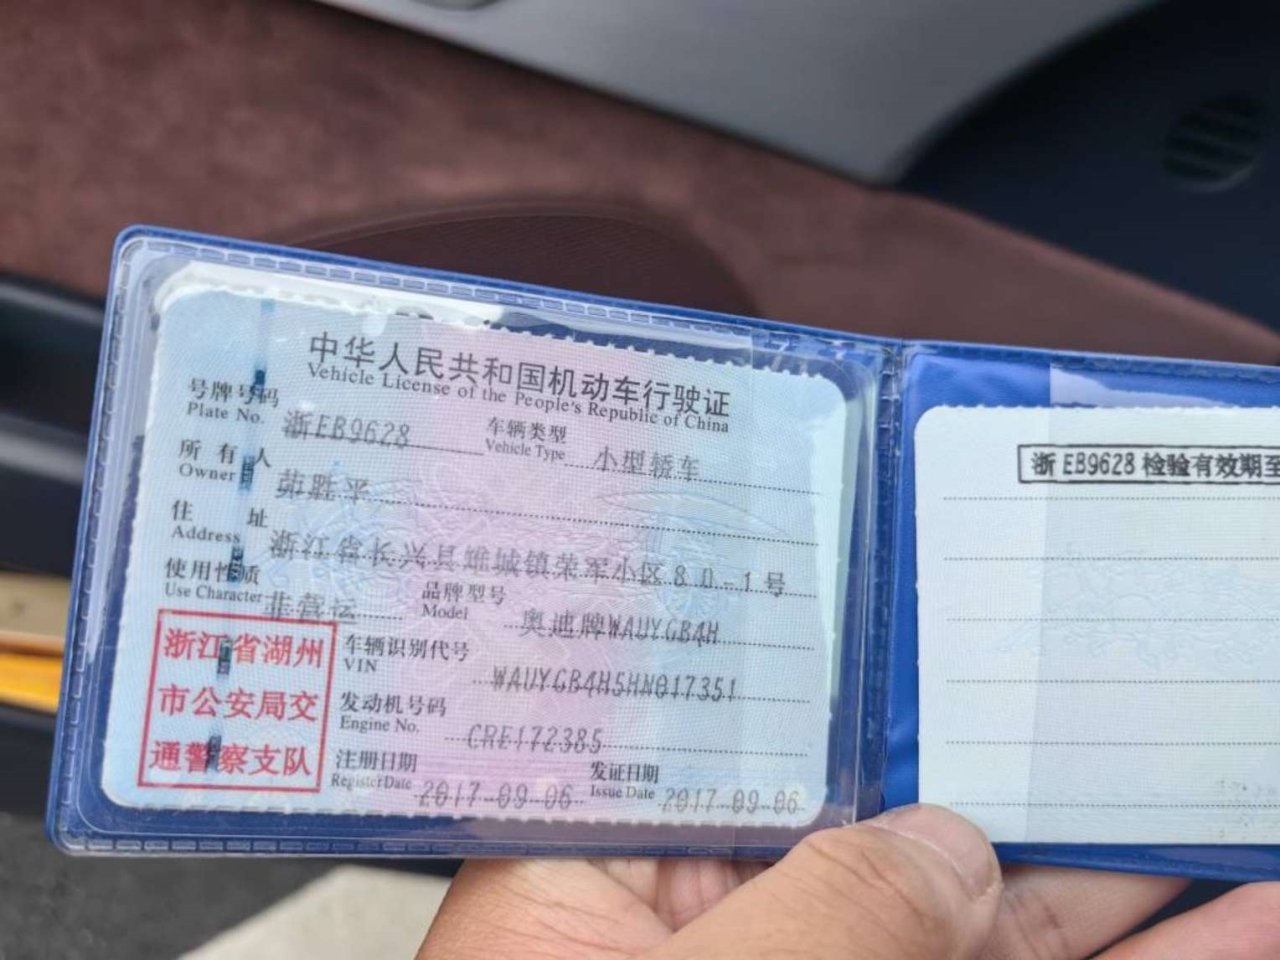 中华人民共和国机动车行驶证
Vehicle License of the People's Republic of China
号牌号码 浙EB9628 车辆类型 小型轿车
Plate No. Vehicle Type
所有人 茹胜平
Owner
住址 浙江省长兴县雉城镇荣军小区80-1号
Address
使用性质 非营运 品牌型号 奥迪牌WAUYGB4H
Use Character Model
车辆识别代号 WAUYGB4H5HN017351
VIN
发动机号码 CRE172385
Engine No.
注册日期 2017-09-06 发证日期 2017-09-06
Register Date Issue Date
浙江省湖州
市公安局交
通警察支队
浙EB9628检验有效期至